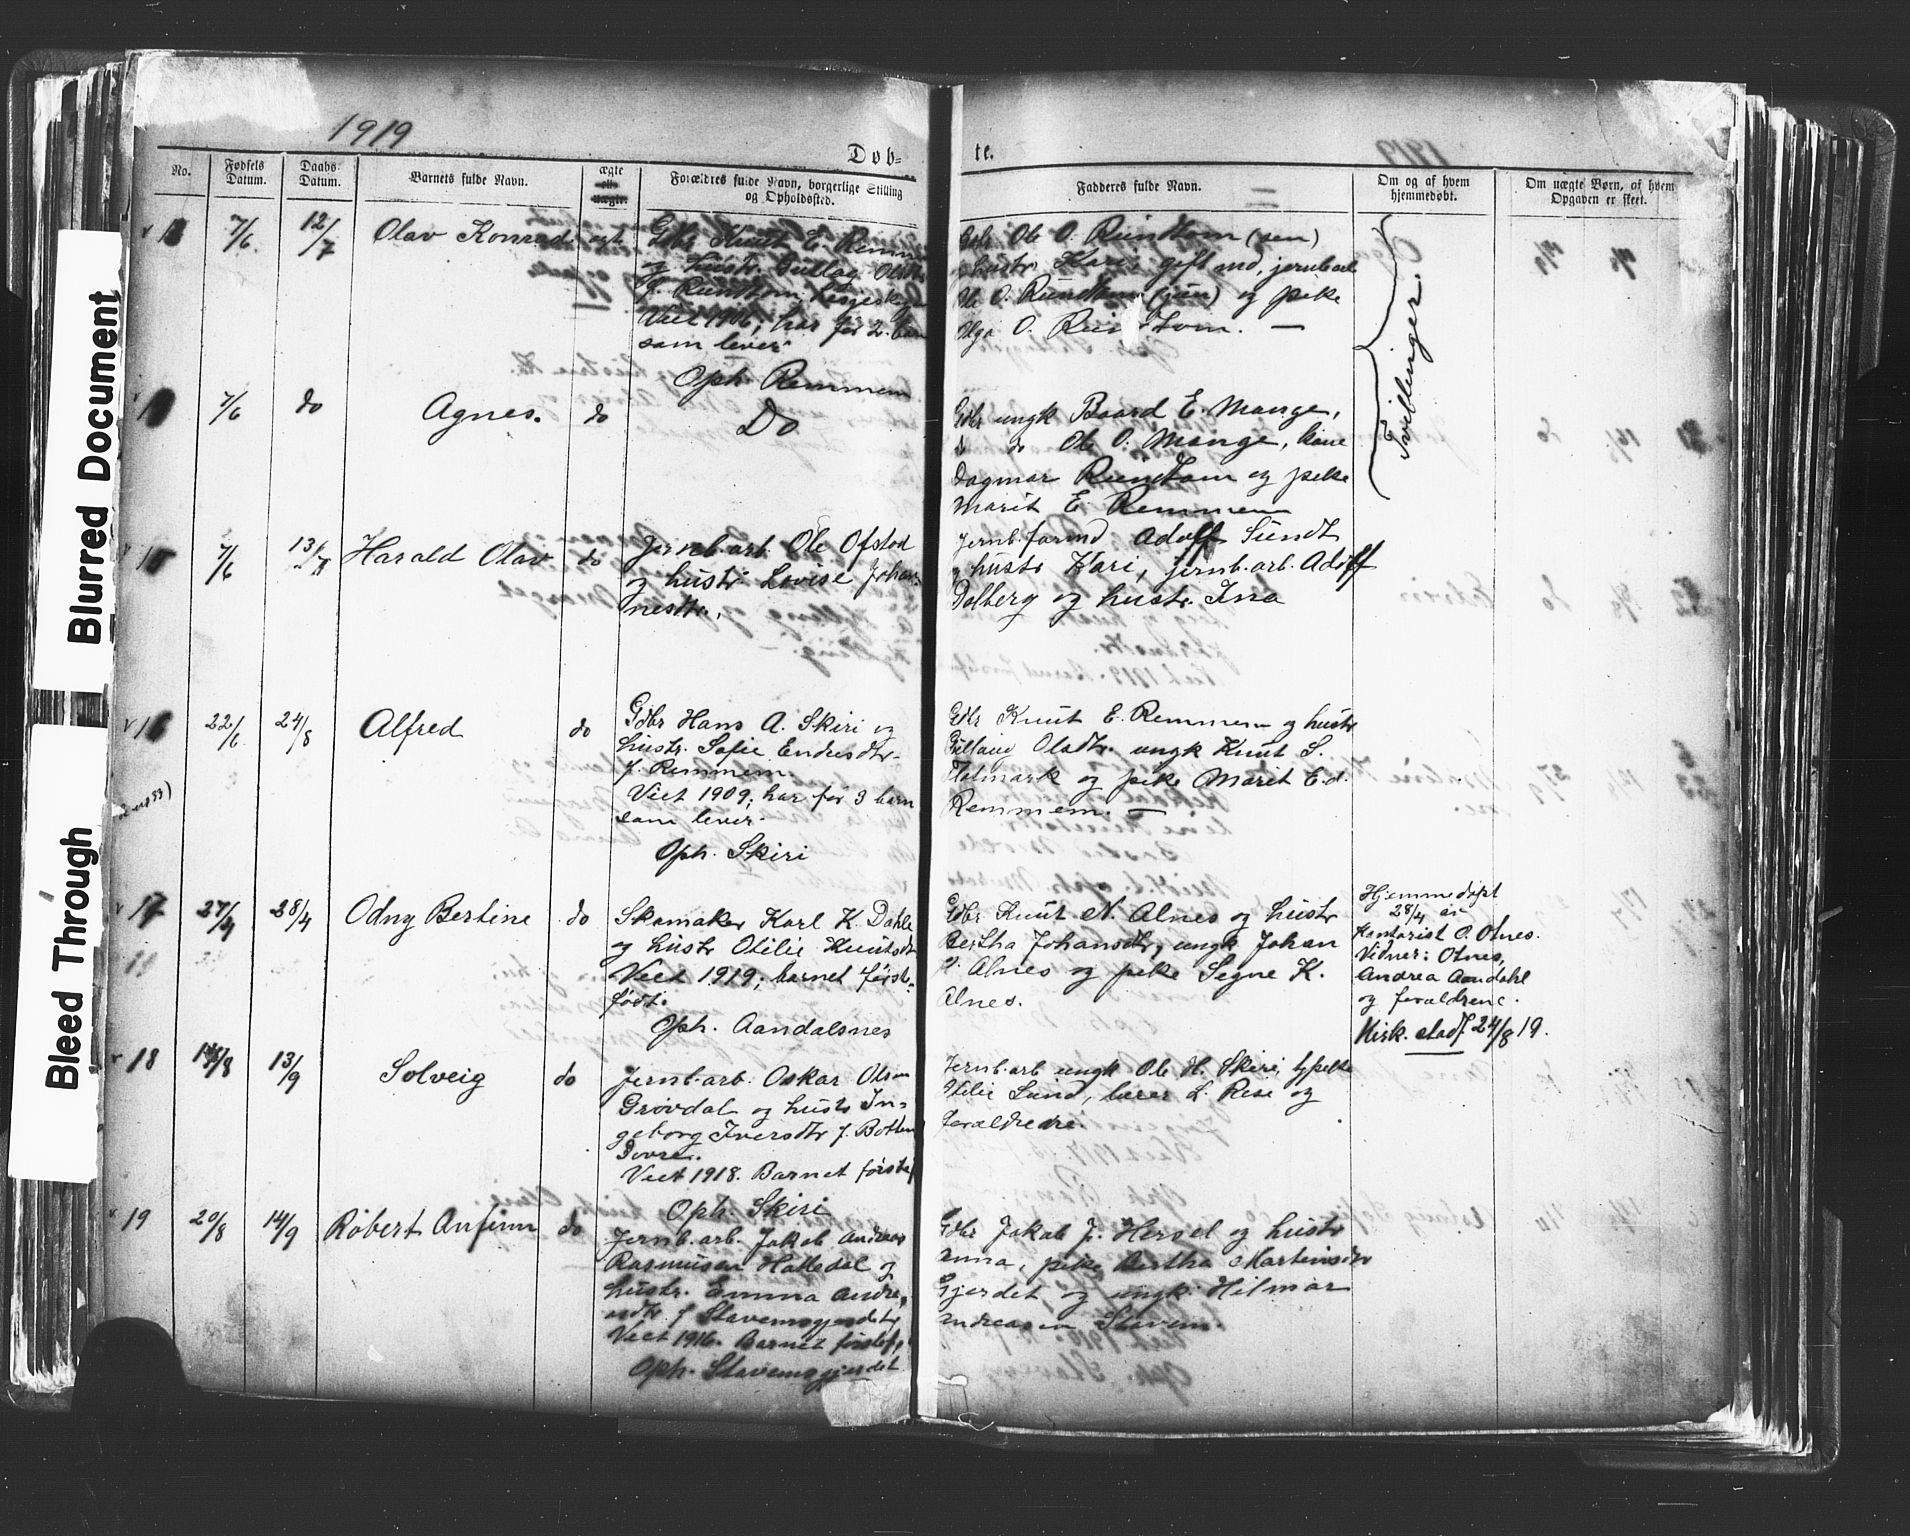 1919
Døb=
te.
No.
Fødsels
Datum.
Daabs
Datum.
Barnets fulde Navn.
ægte
eller
uægte.
Forældres fulde Navn, borgerlige Stilling
og Opholdssted.
Fadderes fulde Navn.
Om og af hvem
hjemmedøbt.
Om uægte Børn, af hvem
Opgaven er skeet.
7/6
12/7
Olav Konrad
egte
Gdbr Knut E. Remm
og hustr. Gullog Olsdtr
f. Rundhom, Lesjeskogen
Viet 1906, har før 2 barn
som lever.
Oph. Remmem
Gdbr Ole O. Rundhom (sen)
og hustr. Kari, gift md, jernb.arb
Ole O. Rundhom (jun) og pike
Olga O. Rundhom. —
Tvillinger.
7/6
do
Agnes.
do
Do
Gdbr ungk Baard E. Mange,
do do Ole O. Mange, kone
Dagmar Rundhom og pike
Marit E. Remmem
7/6
13/7
Harald Olav
do
Jernb.arb. Ole Ofstad
og hustr Lovise Johan-
nesdtr.
Jernb.formd Adolf Sundt
og hustr Kari, jernb.arb. Adolf
Dolberg og hustr. Ina
16
22/6
24/8
Alfred
do
Gdbr Hans A. Skiri og
hustr. Sofie Endresdtr.
f. Remmem.
Viet 1909, har før 3 barn
som lever.
Oph. Skiri
Gdbr Knut E. Remmem og hustr
Gullaug Olsdtr. ungk Knut S.
Flatmark og pike Marit E.d.
Remmem. —
17
27/4
28/4
Odny Bertine
do
Skomaker Karl K. Dahle
og hustr Otilie Knutsdtr
Viet 1919, barnet først-
født.
Oph. Aandalsnes
Gdbr Knut N. Alnes og hustr
Bertha Johansdtr, ungk Johan
Alnes og pike Segne K.
Alnes.
Hjemmedøpt
28/4 av
Kantorist O. Otnes.
Vidner: Otnes,
Andrea Aandahl
og forældrene.
Kirk. stadf. 24/8 19.
18
14/8
13/9
Solveig
do
Jernb.arb. Oskar Olsen
Grøvdal og hustr In-
geborg Iversdtr f. Botten
Dovre.
Viet 1918. Barnet førstef
Oph. Skiri
Jernb.arb ungk Ole H. Skiri, tj.pike
Otelie Lund, lærer L. Rese og
forældrene.
19
20/8
14/9
Robert Anfinn
do
Jernb.arb. Jakob Andreas
Rasmussen Halledal og
hustr. Emma Andre-
asdtr f Stavemsgjerdet
Viet 1916. Barnet førstef,
Oph. Stavemsgjerdet
Gdbr Jakob J. Hersel og hustr
Anna, pike Bertha Martinsdtr
Gjerdet og ungk. Hilmar
Andreasen Stavem.
Blurred Document
Bleed Through